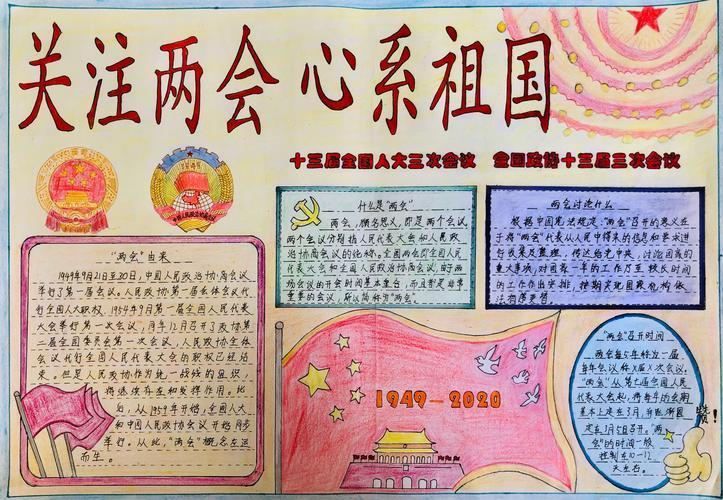 关注两会 心系祖国
十三届全国人大三次会议 全国政协十三届三次会议
"两会"由来
1949年9月21日至30日,中国人民政治协商会议
举行了第一届会议。人民政协第一届全体会议代
行全国人大职权。1954年9月第一届全国人民代表
大会举行第一次会议,同年12月召开了政协第
二届全国委员会第一次会议,人民政协全体
会议代行全国人民代表大会的职权已经结
束,但是人民政协作为统一战线的组织,
将继续存在和发挥作用。此
后,从1959年开始,全国人大
和中国人民政协会议开始同步
举行。从此,"两会"概念应运
而生。
什么是"两会"
两会,顾名思义,即是两个会议,
两个会议分别指人民代表大会和人民政
治协商会议的统称。全国两会即全国人民
代表大会和全国人民政治协商会议,由于两
场会议的开会时间基本重合,而且都是非常
重要的会议,所以简称为"两会"。
两会讨论什么
根据中国宪法规定:"两会"召开的意义在
于将"两会"代表从人民中得来的信息和要求进
行收集及整理,传达给党中央,讨论国家的
重大事项,对国家一年的工作乃至较长时间
的工作作出安排,
1949—2020
"两会"召开时间
两会每5年称为一届
每年会议称X届X次会议,
"两会"从第七届全国人民
代表大会起,将每年的会期
基本上定在3月,
"两
会"的时间一般
控制在10-12
天左右。
赞!